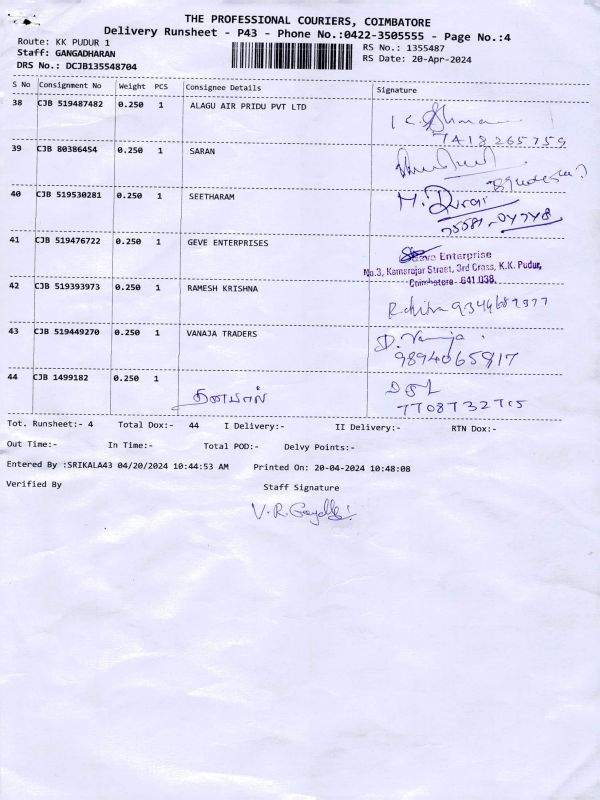 THE PROFESSIONAL COURIERS, COIMBATORE
Delivery Runsheet - P43 - Phone No.:0422-3505555 - Page No.:4
Route: KK PUDUR 1
RS No.: 1355487
Staff: GANGADHARAN
RS Date: 20-Apr-2024
DRS No.: DCJB135548704
S No Consignment No Weight PCS Consignee Details Signature
38 CJB 519487482 0.250 1 ALAGU AIR PRIDU PVT LTD
7418265759
39 CJB 80386454 0.250 1 SARAN
40 CJB 519530281 0.250 1 SEETHARAM M. Durai
75581-04748
41 CJB 519476722 0.250 1 GEVE ENTERPRISES
Geve Enterprise
No.3, Kamarajar Street, 3rd Cross, K.K. Pudur,
Coimbatore- 641 038.
42 CJB 519393973 0.250 1 RAMESH KRISHNA
43 CJB 519449270 0.250 1 VANAJA TRADERS D. Vanaja
9894065917
44 CJB 1499182 0.250 1 தனபால்
7708732715
Tot. Runsheet:- 4 Total Dox:- 44 I Delivery:- II Delivery:- RTN Dox:-
Out Time:- In Time:- Total POD:- Delvy Points:-
Entered By :SRIKALA43 04/20/2024 10:44:53 AM Printed On: 20-04-2024 10:48:08
Verified By Staff Signature